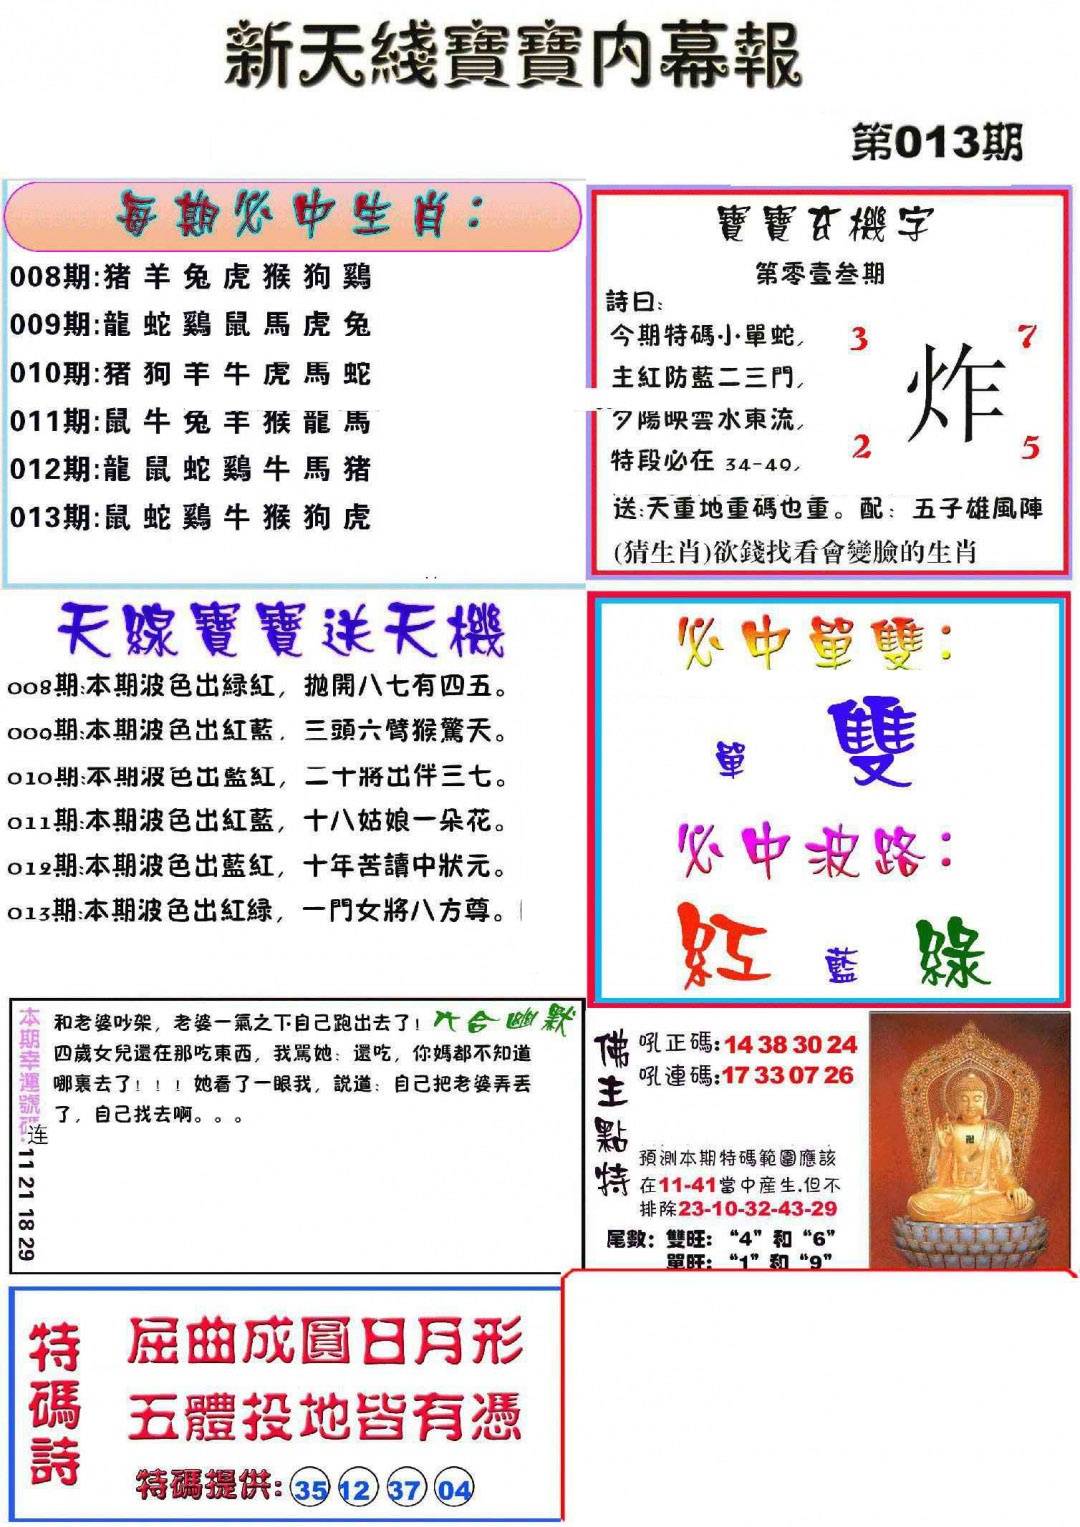 新天綫寶寶内幕報
第013期
每期必中生肖：
008期:猪羊兔虎猴狗鷄
009期:龍蛇鷄鼠馬虎兔
010期:猪狗羊牛虎馬蛇
011期:鼠牛兔羊猴龍馬
012期:龍鼠蛇鷄牛馬猪
013期:鼠蛇鷄牛猴狗虎
寶寶玄機字
第零壹叁期
詩曰:
今期特碼小單蛇,
主紅防藍二三門,
夕陽映雲水東流,
特段必在 34-49,
3 7
炸
2 5
送:天重地重碼也重。配：五子雄風陣
(猜生肖)欲錢找看會變臉的生肖
天線寶寶送天機
008期:本期波色出緑紅，抛開八七有四五。
009期:本期波色出紅藍，三頭六臂猴驚天。
010期:本期波色出藍紅，二十將出伴三七。
011期:本期波色出紅藍，十八姑娘一朵花。
012期:本期波色出藍紅，十年苦讀中狀元。
013期:本期波色出紅緑，一門女將八方尊。
必中單雙：
單 雙
必中波路：
紅 藍 綠
本期幸運號碼:
连
11 21 18 29
六合幽默
和老婆吵架，老婆一氣之下自己跑出去了！
四歲女兒還在那吃東西，我駡她：還吃，你媽都不知道
哪裏去了！！！她看了一眼我，説道：自己把老婆弄丢
了，自己找去啊。。。
佛主點特
吼正碼:14 38 30 24
吼連碼:17 33 07 26
預測本期特碼範圍應該
在11-41當中産生.但不
排除23-10-32-43-29
尾數：雙旺：“4”和“6”
單旺：“1”和“9”
特碼詩
屈曲成圓日月形
五體投地皆有憑
特碼提供: 35 12 37 04